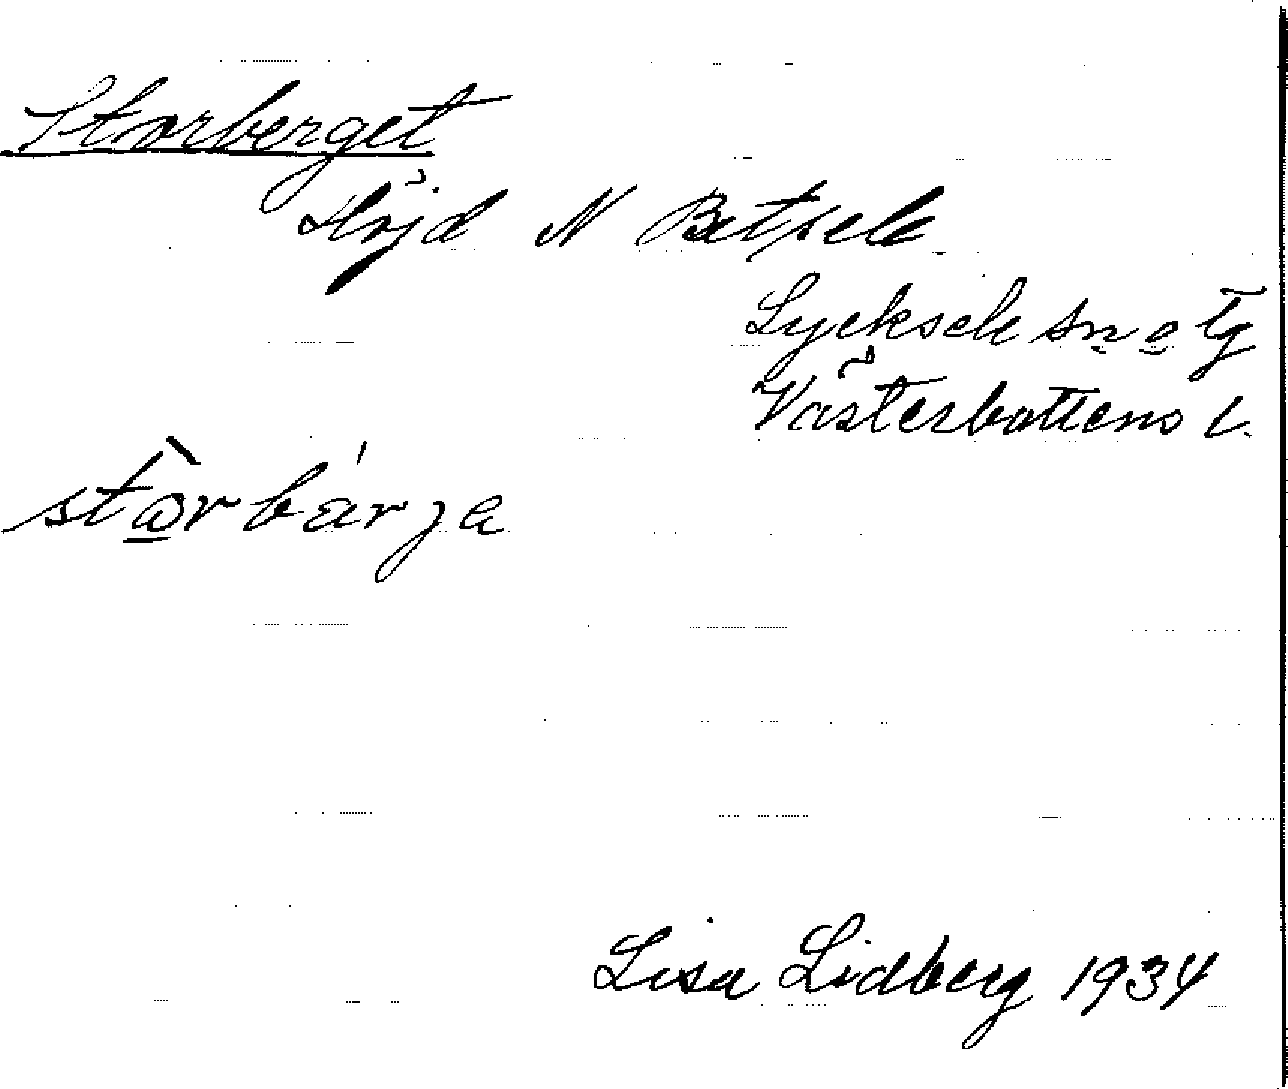 Storberget
Höjd N Betsele
Lycksele sn o tg
Västerbottens l.
stò̱rbár ja
Lisa Lidberg 1934